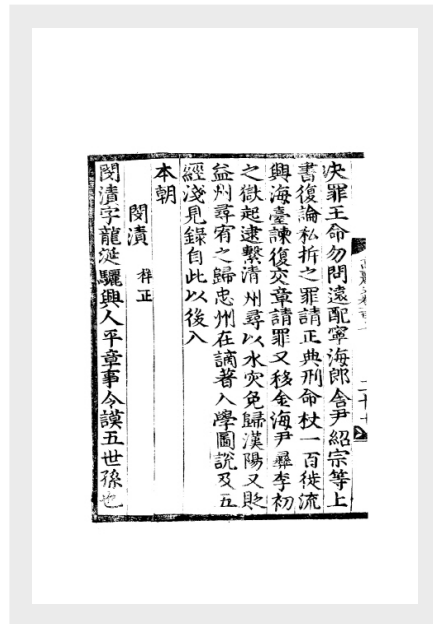 決罪王命勿問遠配寧海郎舍尹紹宗等上
書復論私拆之罪請正典刑命杖一百徙流
興海臺諫復交章請罪又移金海尹彝李初
之獄起逮繫清州尋以水灾免歸漢陽又貶
益州尋宥之歸忠州在謫著入學圖說及五
經淺見錄自此以後入
本朝
閔漬 祥正
閔漬字龍涎驪興人平章事令謨五世孫也